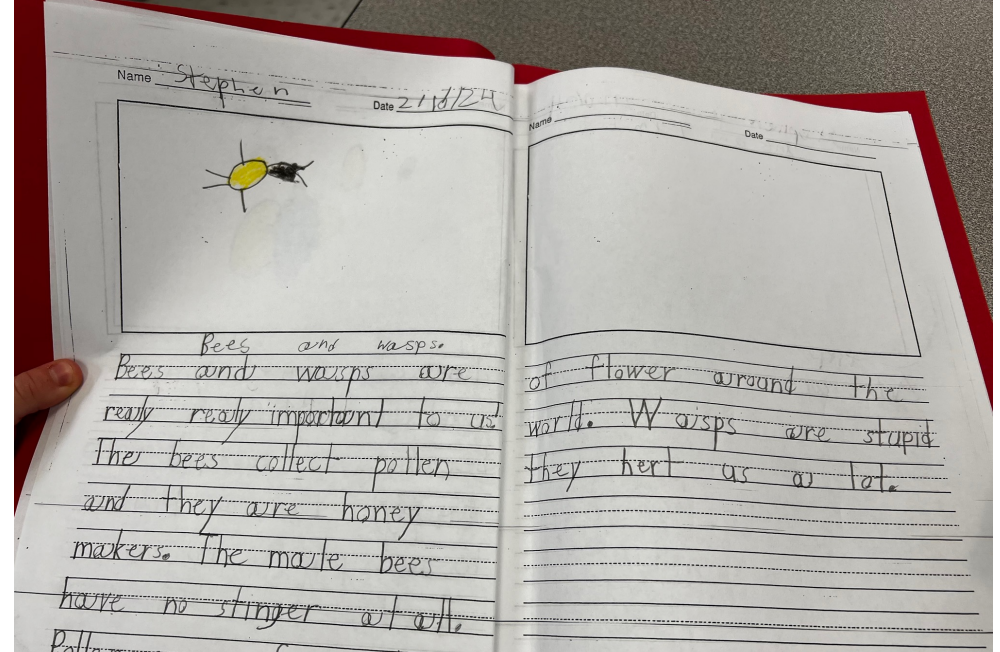 Name Stephen
Date
Bees and wasps.
Bees and wasps are
realy realy important to us
The bees collect pollen
and they are honey
makers. The male bees
have no stinger at all.
Name
Date
of flower around the
world. Waisps are stupid
they hert us a lot.